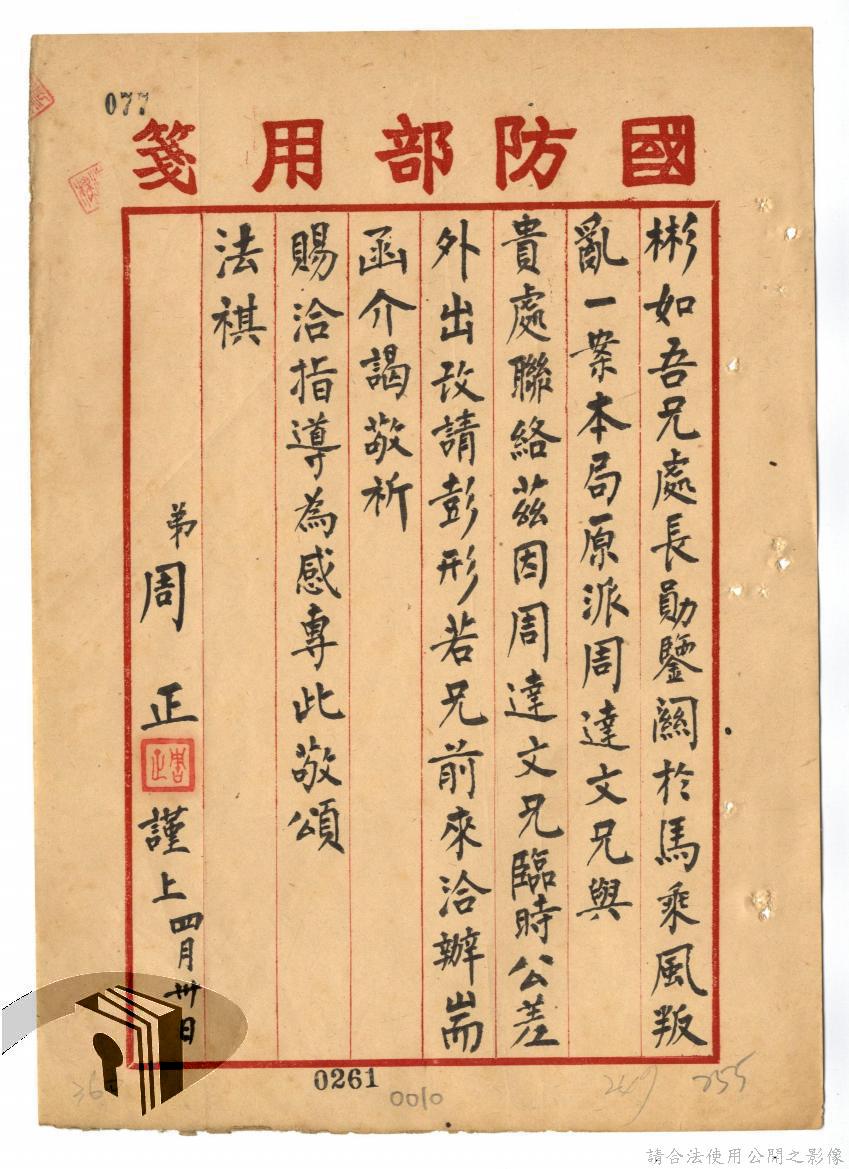 077
國防部用箋
彬如吾兄處長勛鑒關於馬乘風叛
亂一案本局原派周達文兄與
貴處聯絡茲因周達文兄臨時公差
外出改請彭形若兄前來洽辦耑
函介謁敬祈
賜洽指導為感專此敬頌
法祺
弟周正
謹上四月卅日
0261
0010
249
255
請合法使用公開之影像